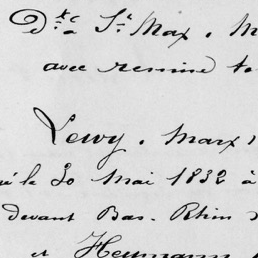 Dte à St Max. M
avec remise to
Levy. Marx
né le 30 Mai 1832 à
devant Bas-Rhin
et Heumann